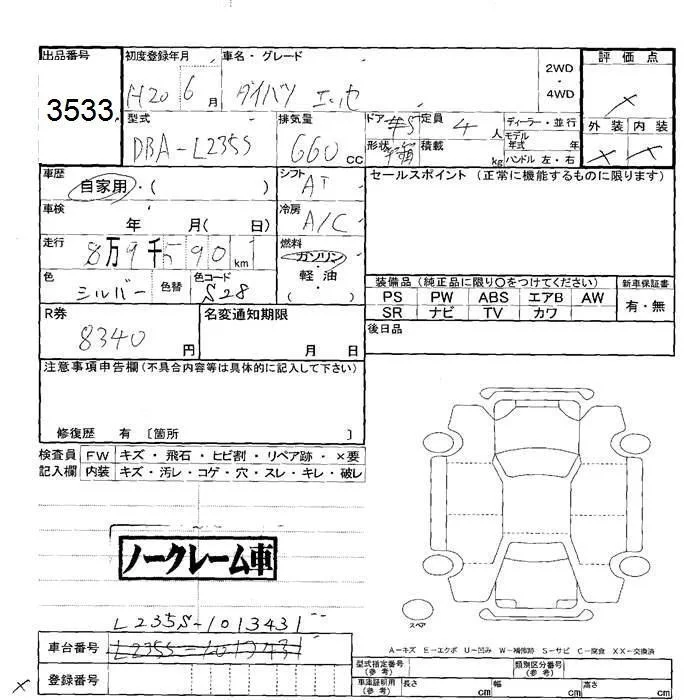 出品番号 初度登録年月 車名・グレード 2WD・4WD 評価点
3533 H20 6月 ダイハツ エッセ ×
型式 排気量 ドア #5 定員 4人 ディーラー・並行 外装 内装
DBA-L235S 660cc 形状 積載 kg モデル年式 年 × ×
ハンドル 左・右
車歴 シフト セールスポイント (正常に機能するものに限ります)
自家用・( ) AT
車検 冷房
年 月( 日) A/C
走行 燃料
8万9千590km ガソリン・軽油
色 色替 色コード ( )
シルバー S28
装備品 (純正品に限り○をつけてください) 新車保証書
PS PW ABS エアB AW 有・無
SR ナビ TV カワ
R券 名変通知期限 後日品
8340円 月 日
注意事項申告欄 (不具合内容等は具体的に記入して下さい)
修復歴 有 〔箇所 〕
検査員 FW キズ・飛石・ヒビ割・リペア跡・×要
記入欄 内装 キズ・汚レ・コゲ・穴・スレ・キレ・破レ
ノークレーム車
スペア
L235S-1013431
車台番号 L235S-1013431
A-キズ E-エクボ U-凹み W-補修跡 S-サビ C-腐食 XX-交換済
型式指定番号(参考) 類別区分番号(参考)
登録番号 車庫証明用(参考) 長さ cm 幅 cm 高さ cm
×